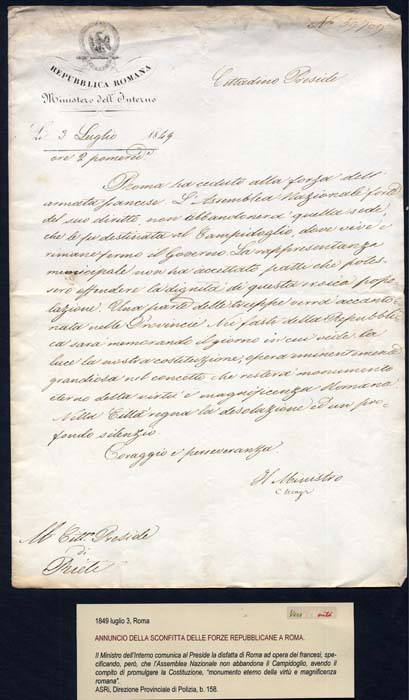 N° 39709
REPUBBLICA ROMANA
Ministero dell'Interno
Cittadino Preside
Li 3 Luglio 1849
ore 2 pomerid.
Roma ha ceduto alla forza dell'
armata francese. L'Assemblea Nazionale forte
del suo diritto non abbandonerà quella sede,
che le fu destinata al Campidoglio, dove vive e
rimane fermo il Governo. La rappresentanza
municipale non ha accettato patti che potes-
sero offendere la dignità di questa eroica popo-
lazione. Una parte delle truppe verrà accanto-
nata nelle Provincie. Nei fasti della Repubbli-
ca sarà memorando il giorno in cui vide la
luce la nostra costituzione, opera eminentemente
grandiosa nel concetto che resterà monumento
eterno della virtù e magnificenza Romana.
Nella Città regna la desolazione ed un pro-
fondo silenzio.
Coraggio e perseveranza.
Il Ministro
Al Citt.no Preside
di
Rieti
1849 luglio 3, Roma
ANNUNCIO DELLA SCONFITTA DELLE FORZE REPUBBLICANE A ROMA.
Il Ministro dell'Interno comunica al Preside la disfatta di Roma ad opera dei francesi, spe-
cificando, però, che l'Assemblea Nazionale non abbandona il Campidoglio, avendo il
compito di promulgare la Costituzione, "monumento eterno della virtù e magnificenza
romana".
ASRi, Direzione Provinciale di Polizia, b. 158.